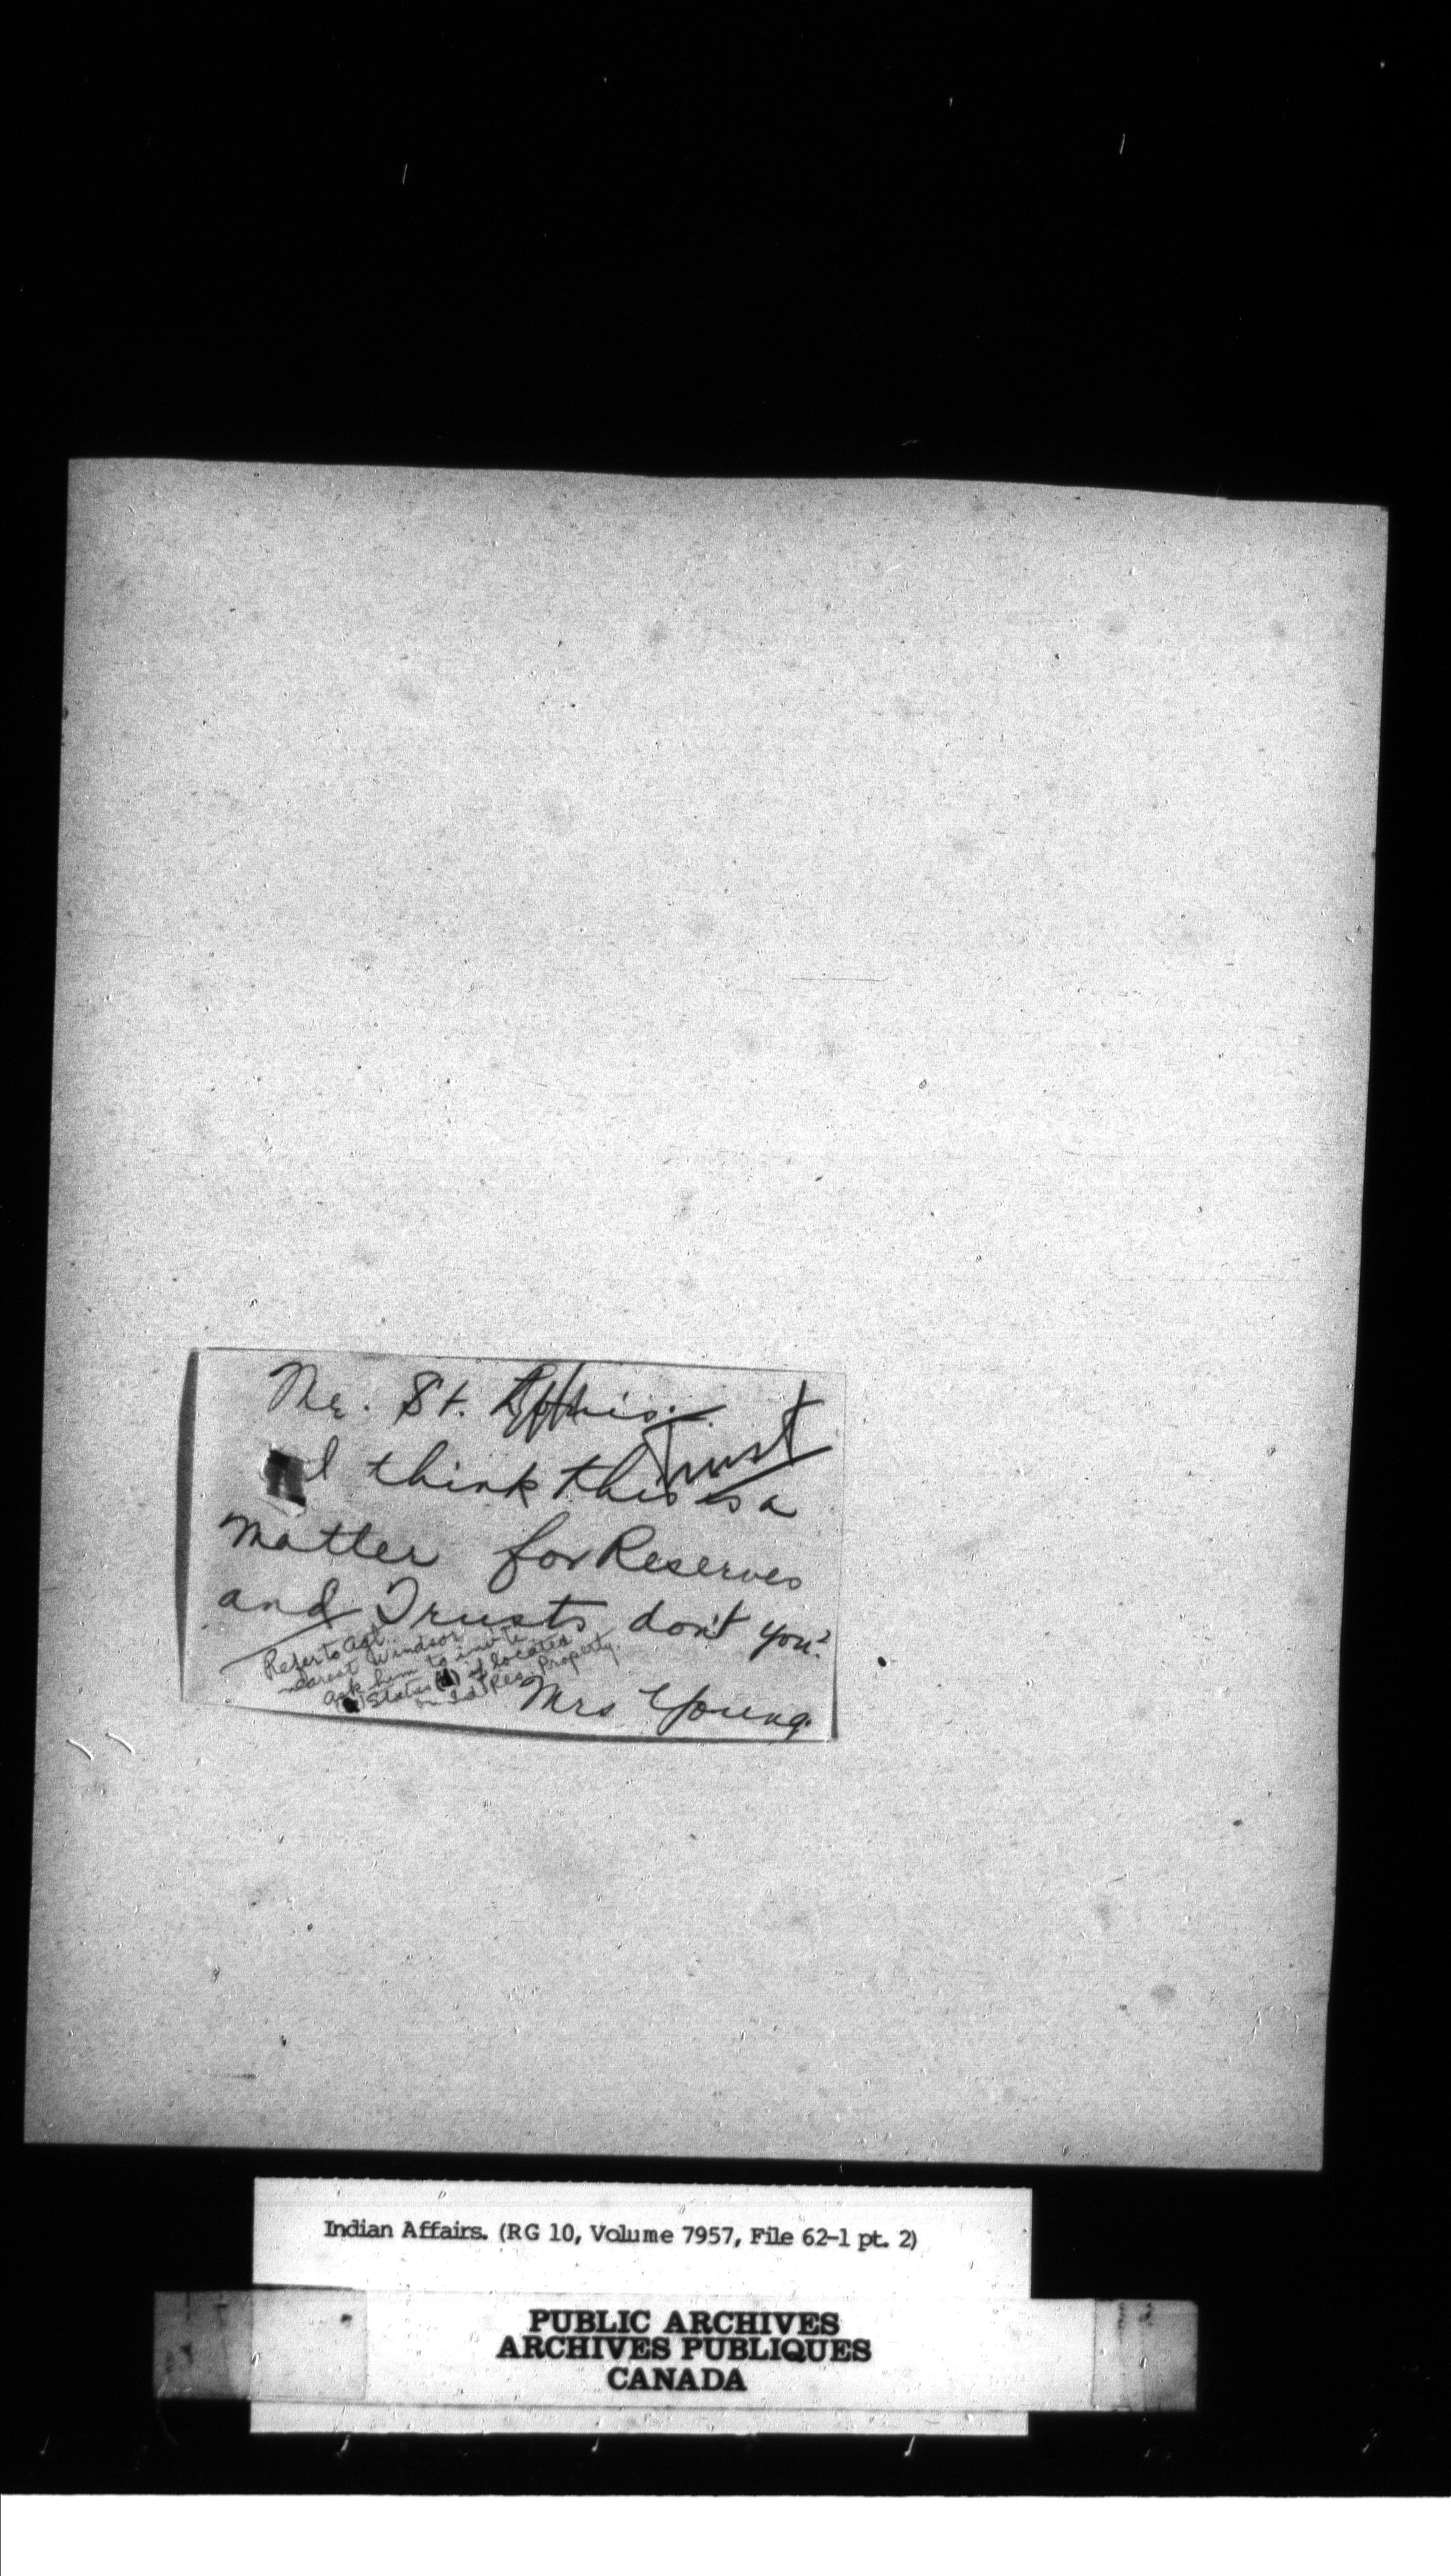 Mr. St.
Trust
I think this is a
matter for Reserves
and Trusts don't you?
Refer to Agt.
nearest Windsor
ask him to
Status if located
on Ind Res. Property.
Mrs Young.
Indian Affairs. (RG 10, Volume 7957, File 62-1 pt. 2)
PUBLIC ARCHIVES
ARCHIVES PUBLIQUES
CANADA